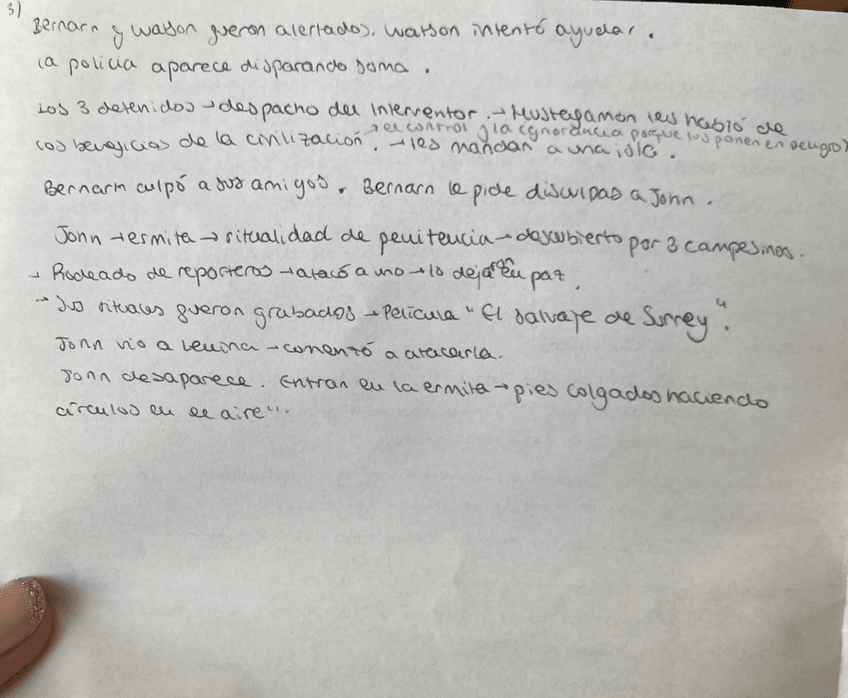 3)
Bernarn y Watson fueron alertados. Watson intentó ayudar.
la policia aparece disparando soma.
Los 3 detenidos → despacho del Interventor. → Mustafamon les habló de
→ el control y la ignorancia porque los ponen en peligro)
los beneficios de la civilización. → les mandan a una isla.
Bernarn culpó a sus amigos. Bernarn le pide disculpas a John.
John → ermita → ritualidad de penitencia → descubierto por 3 campesinos.
→ Rodeado de reporteros → atacó a uno → lo dejarón en paz.
→ Sus rituales fueron grabados → Película "El salvaje de Surrey".
John vio a Lenina → comenzó a atacarla.
John desaparece. Entran en la ermita → pies colgados haciendo
círculos en el aire".